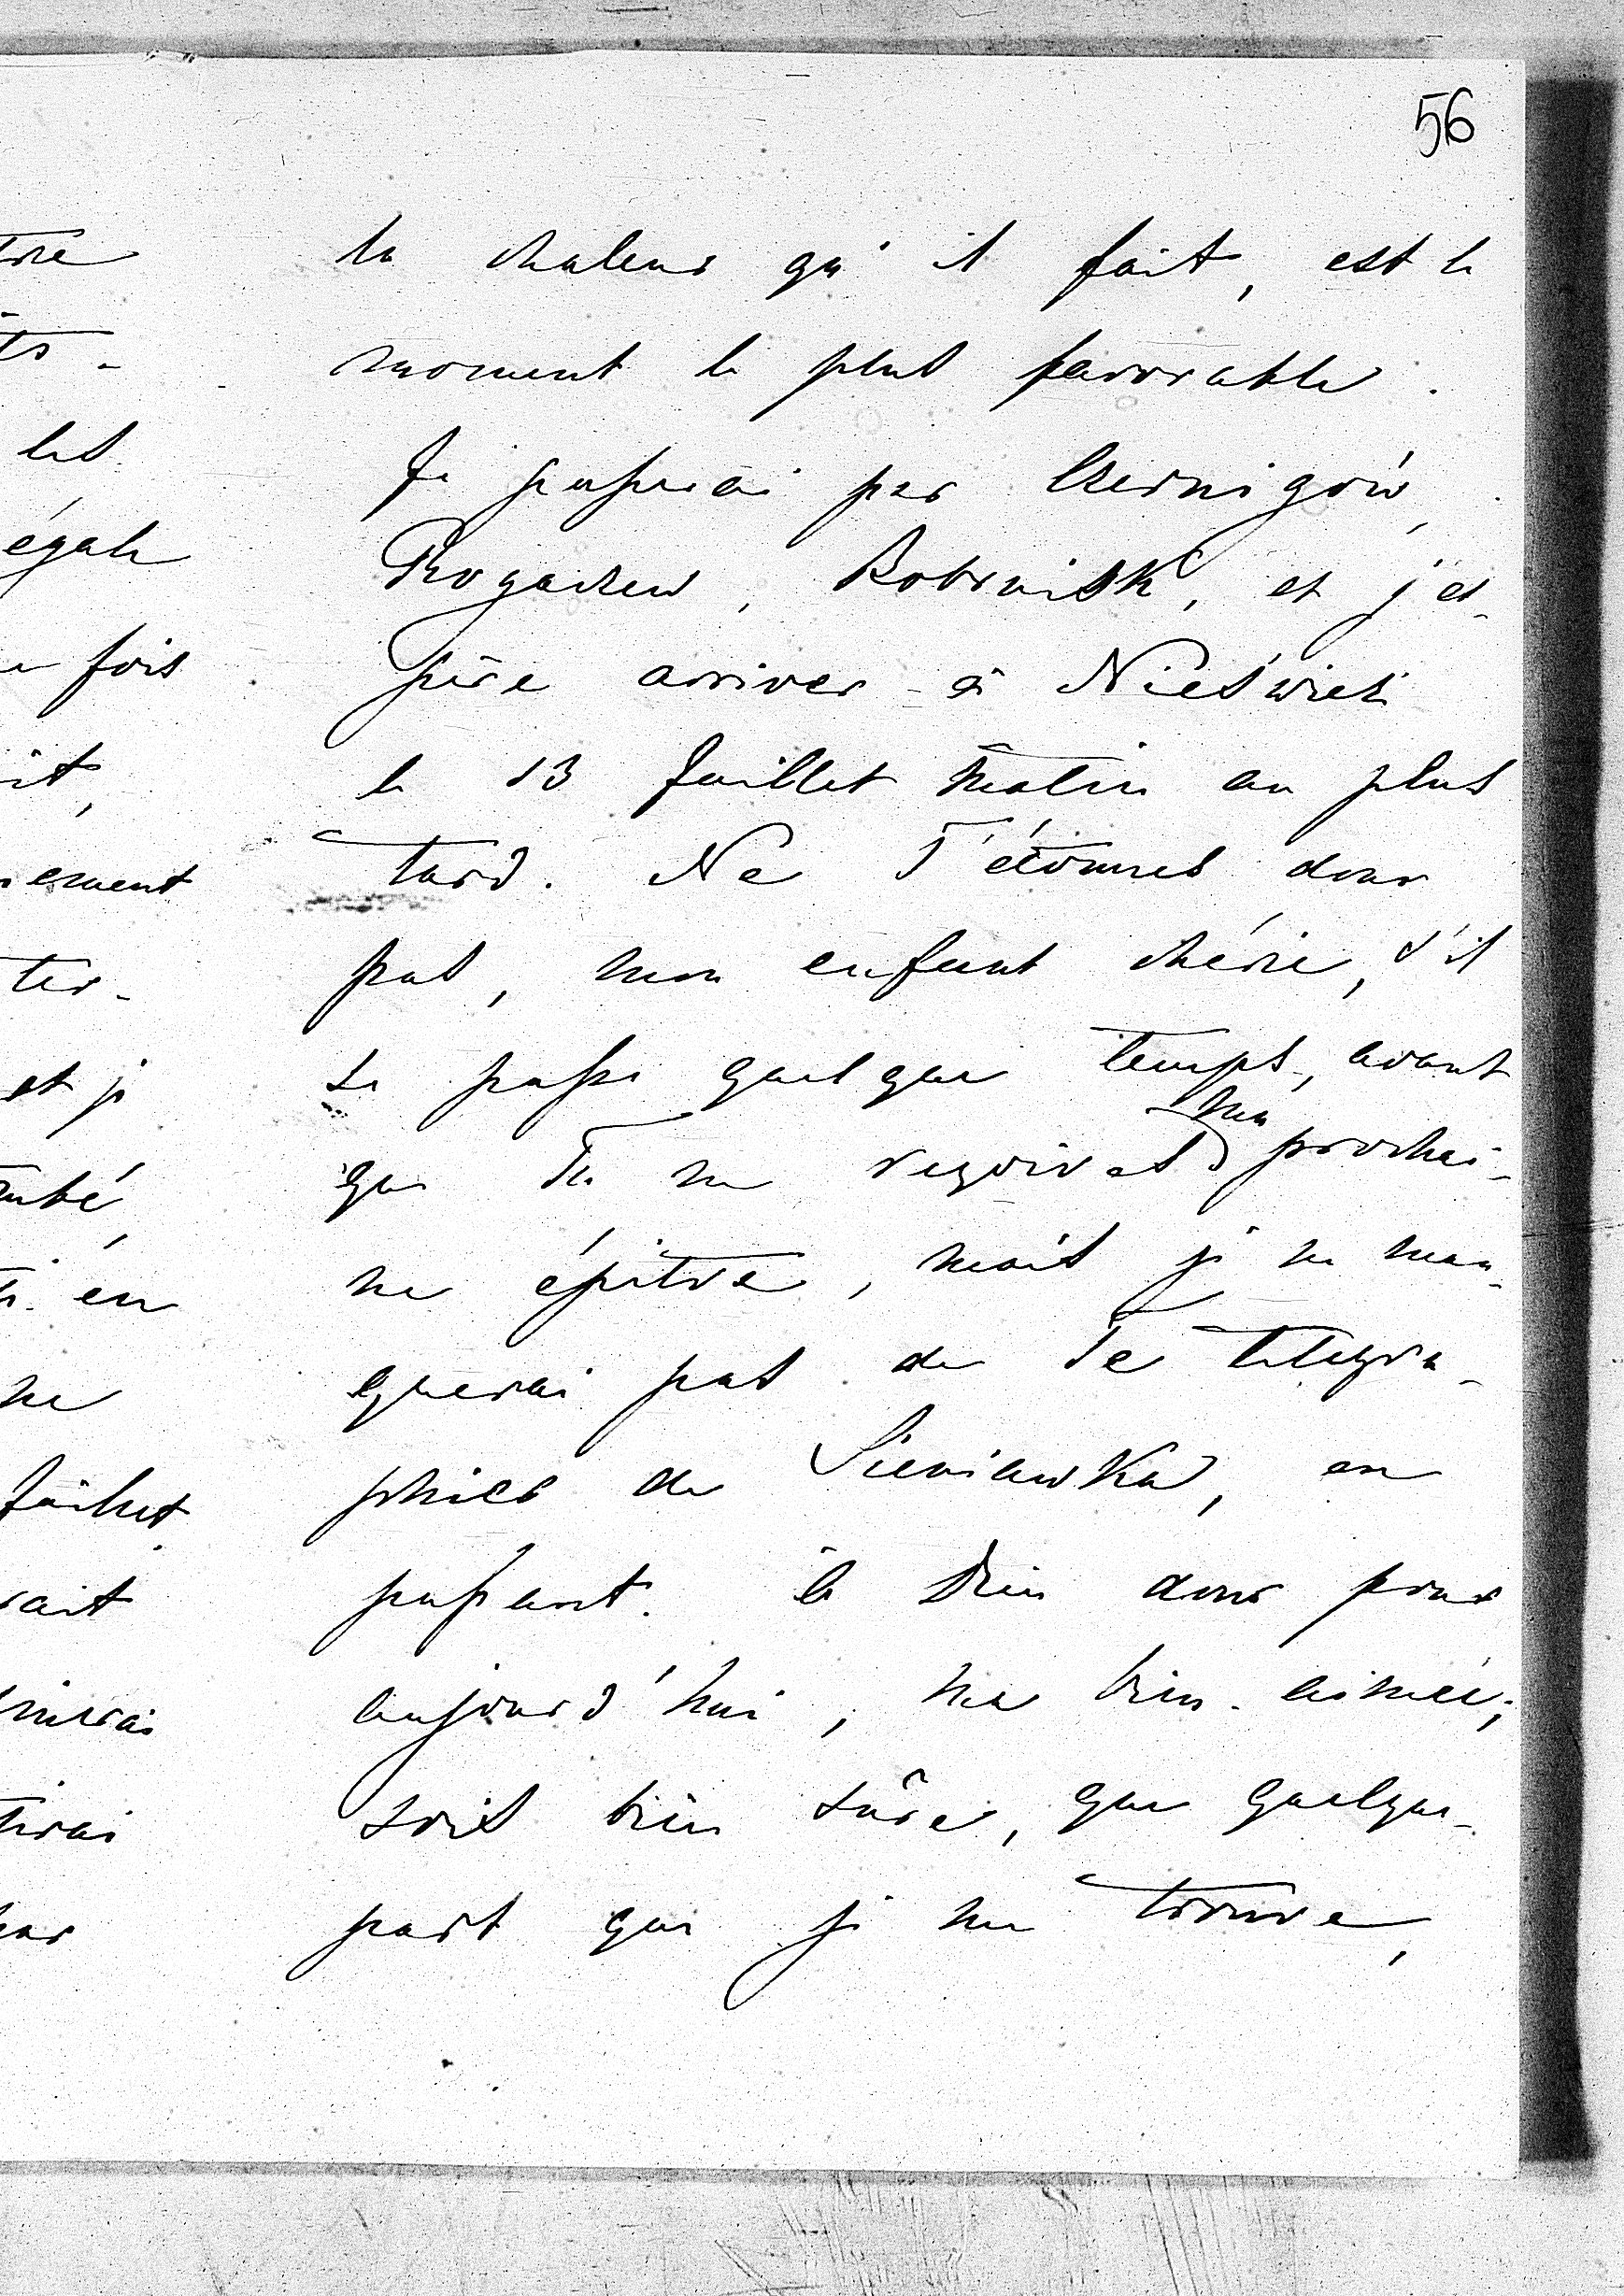 56
la chaleur qu'il fait, est le
moment le plus favorable.
Je passerai par Czernigów,
Rogaczew, Bobruisk, et j'es-
père arriver à Nieśwież
le 13 Juillet matin au plus
tard. Ne T'étonnes donc
pas, mon enfant chérie, s'il
se passe quelque temps, avant
que Tu ne reçoives ma prochai-
ne épitre, mais je ne man-
querai pas de Te télégra-
phier de Sieniawka, en
passant. à Dieu donc pour
aujourd'hui, ma bien-aimée;
sois bien sûre, que quelque-
part que je me trouve,
tre
les
égale
fois
it,
ement
ter-
et je
tubé,
en
ne
Juillet.
rait
tirai